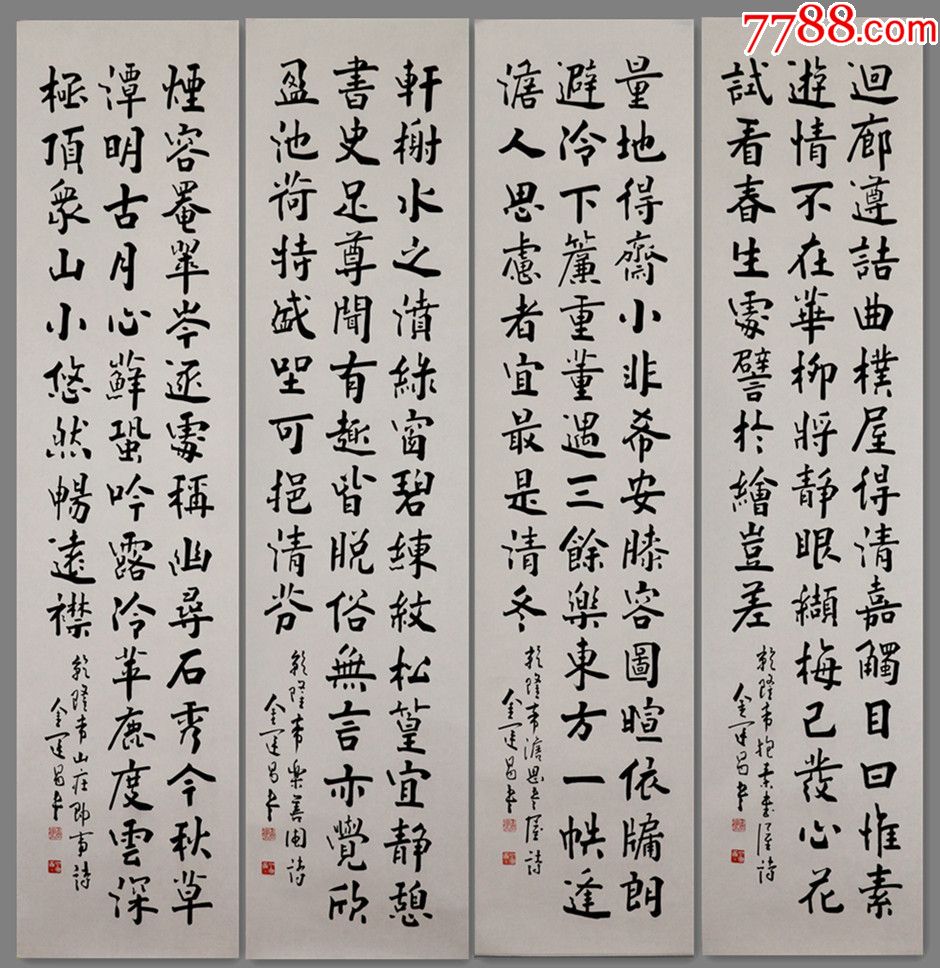 7788.com
迴廊遵詰曲樸屋得清嘉觸目曰惟素
遊情不在華柳將靜眼纈梅已發心花
試看春生處譬於繪豈差
乾隆帝抱素書屋詩
金運昌書
量地得齋小非希安膝容圖暄依牖朗
避冷下簾重董遇三餘樂東方一帙逢
澹人思慮者宜最是清冬
乾隆帝澹思書屋詩
金運昌書
軒榭水之濆綠窗碧練紋松篁宜靜憩
書史足尊聞有趣皆脫俗無言亦覺欣
盈池荷特盛坐可挹清芬
乾隆帝樂善園詩
金運昌書
煙容罨翠岑邃處稱幽尋石秀今秋草
潭明古月心蘚蛩吟露冷苹鹿度雲深
極頂衆山小悠然暢遠襟
乾隆帝山莊即事詩
金運昌書